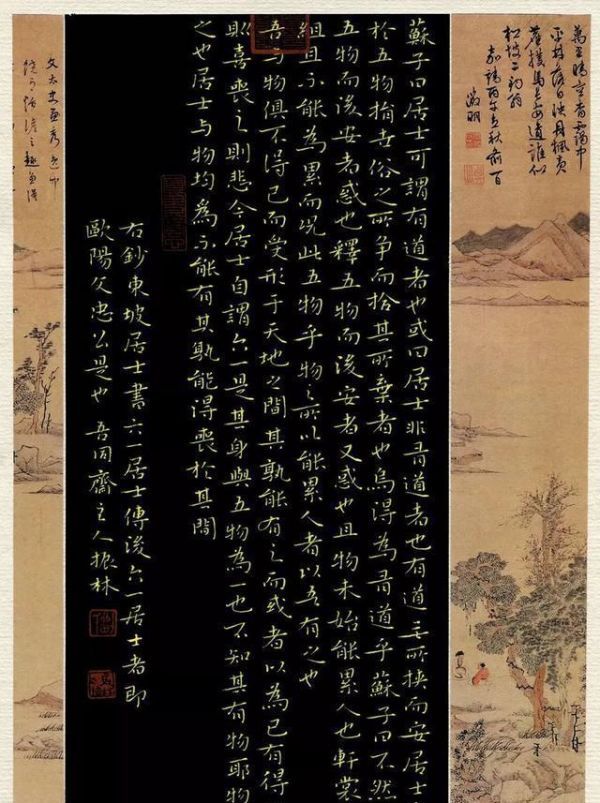 平林落日映丹楓黃
塵撲馬長安道誰似
松坡二釣翁
徵明
蘇子曰居士可謂有道者也或曰居士非有道者也有道者無所挾而安居士
於五物捐世俗之所爭而拾其所棄者也烏得為有道乎蘇子曰不然
五物而後安者惑也釋五物而後安者又惑也且物未始能累人也軒裳
組且不能為累而況此五物乎物之所以能累人者以吾有之也
吾與物俱不得已而受形于天地之間其孰能有之而或者以為己有得
則喜喪之則悲今居士自謂六一是其身與五物為一也不知其有物耶物
之也居士与物均為不能有其孰能得喪於其間
右鈔東坡居士書六一居士傳後六一居士者即
歐陽文忠公是也 吾同齋主人振林
文太史畫秀逸中